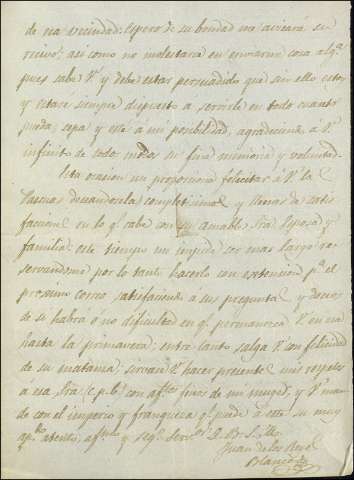 de na vecindad. Espero de su bondad me avisará su
recivo; así como no molestará en enviarme cosa alg.ª
pues sabe V. y debe estar persuadido que sin ello estoy
y estaré siempre dispuesto a servirle en todo cuanto
pueda, sepa y esté á mi posibilidad, agradeciendo á V.
infinito de todos modos su fina memoria y voluntad.
Esta ocasion me proporciona felicitar á V. la
Pascuas deseandosela completisimas y llenas de satis
facciones en lo q.e cabe con su amable Sra. Esposa y
familia: este tiempo me impide ser mas largo re
servandome por lo tanto hacerlo con extencion p.ª el
proximo correo satisfaciendo a sus preguntas y deseos
de si habrá ó no dificultad en q.e permanezca V. en esa
hasta la primavera; entre tanto salga V. con felicidad
de su matanza; sirvase V. hacer presente mis respetos
á esa Sra. (c.p.b.) con af.tos finos de mi muger, y V. man
de con el imperio y franqueza q.e puede á este su muy
ap.do atento, af.mo y seg.o Serv.or Q. B. S. Mo.
Juan de los Reyes
Blanco